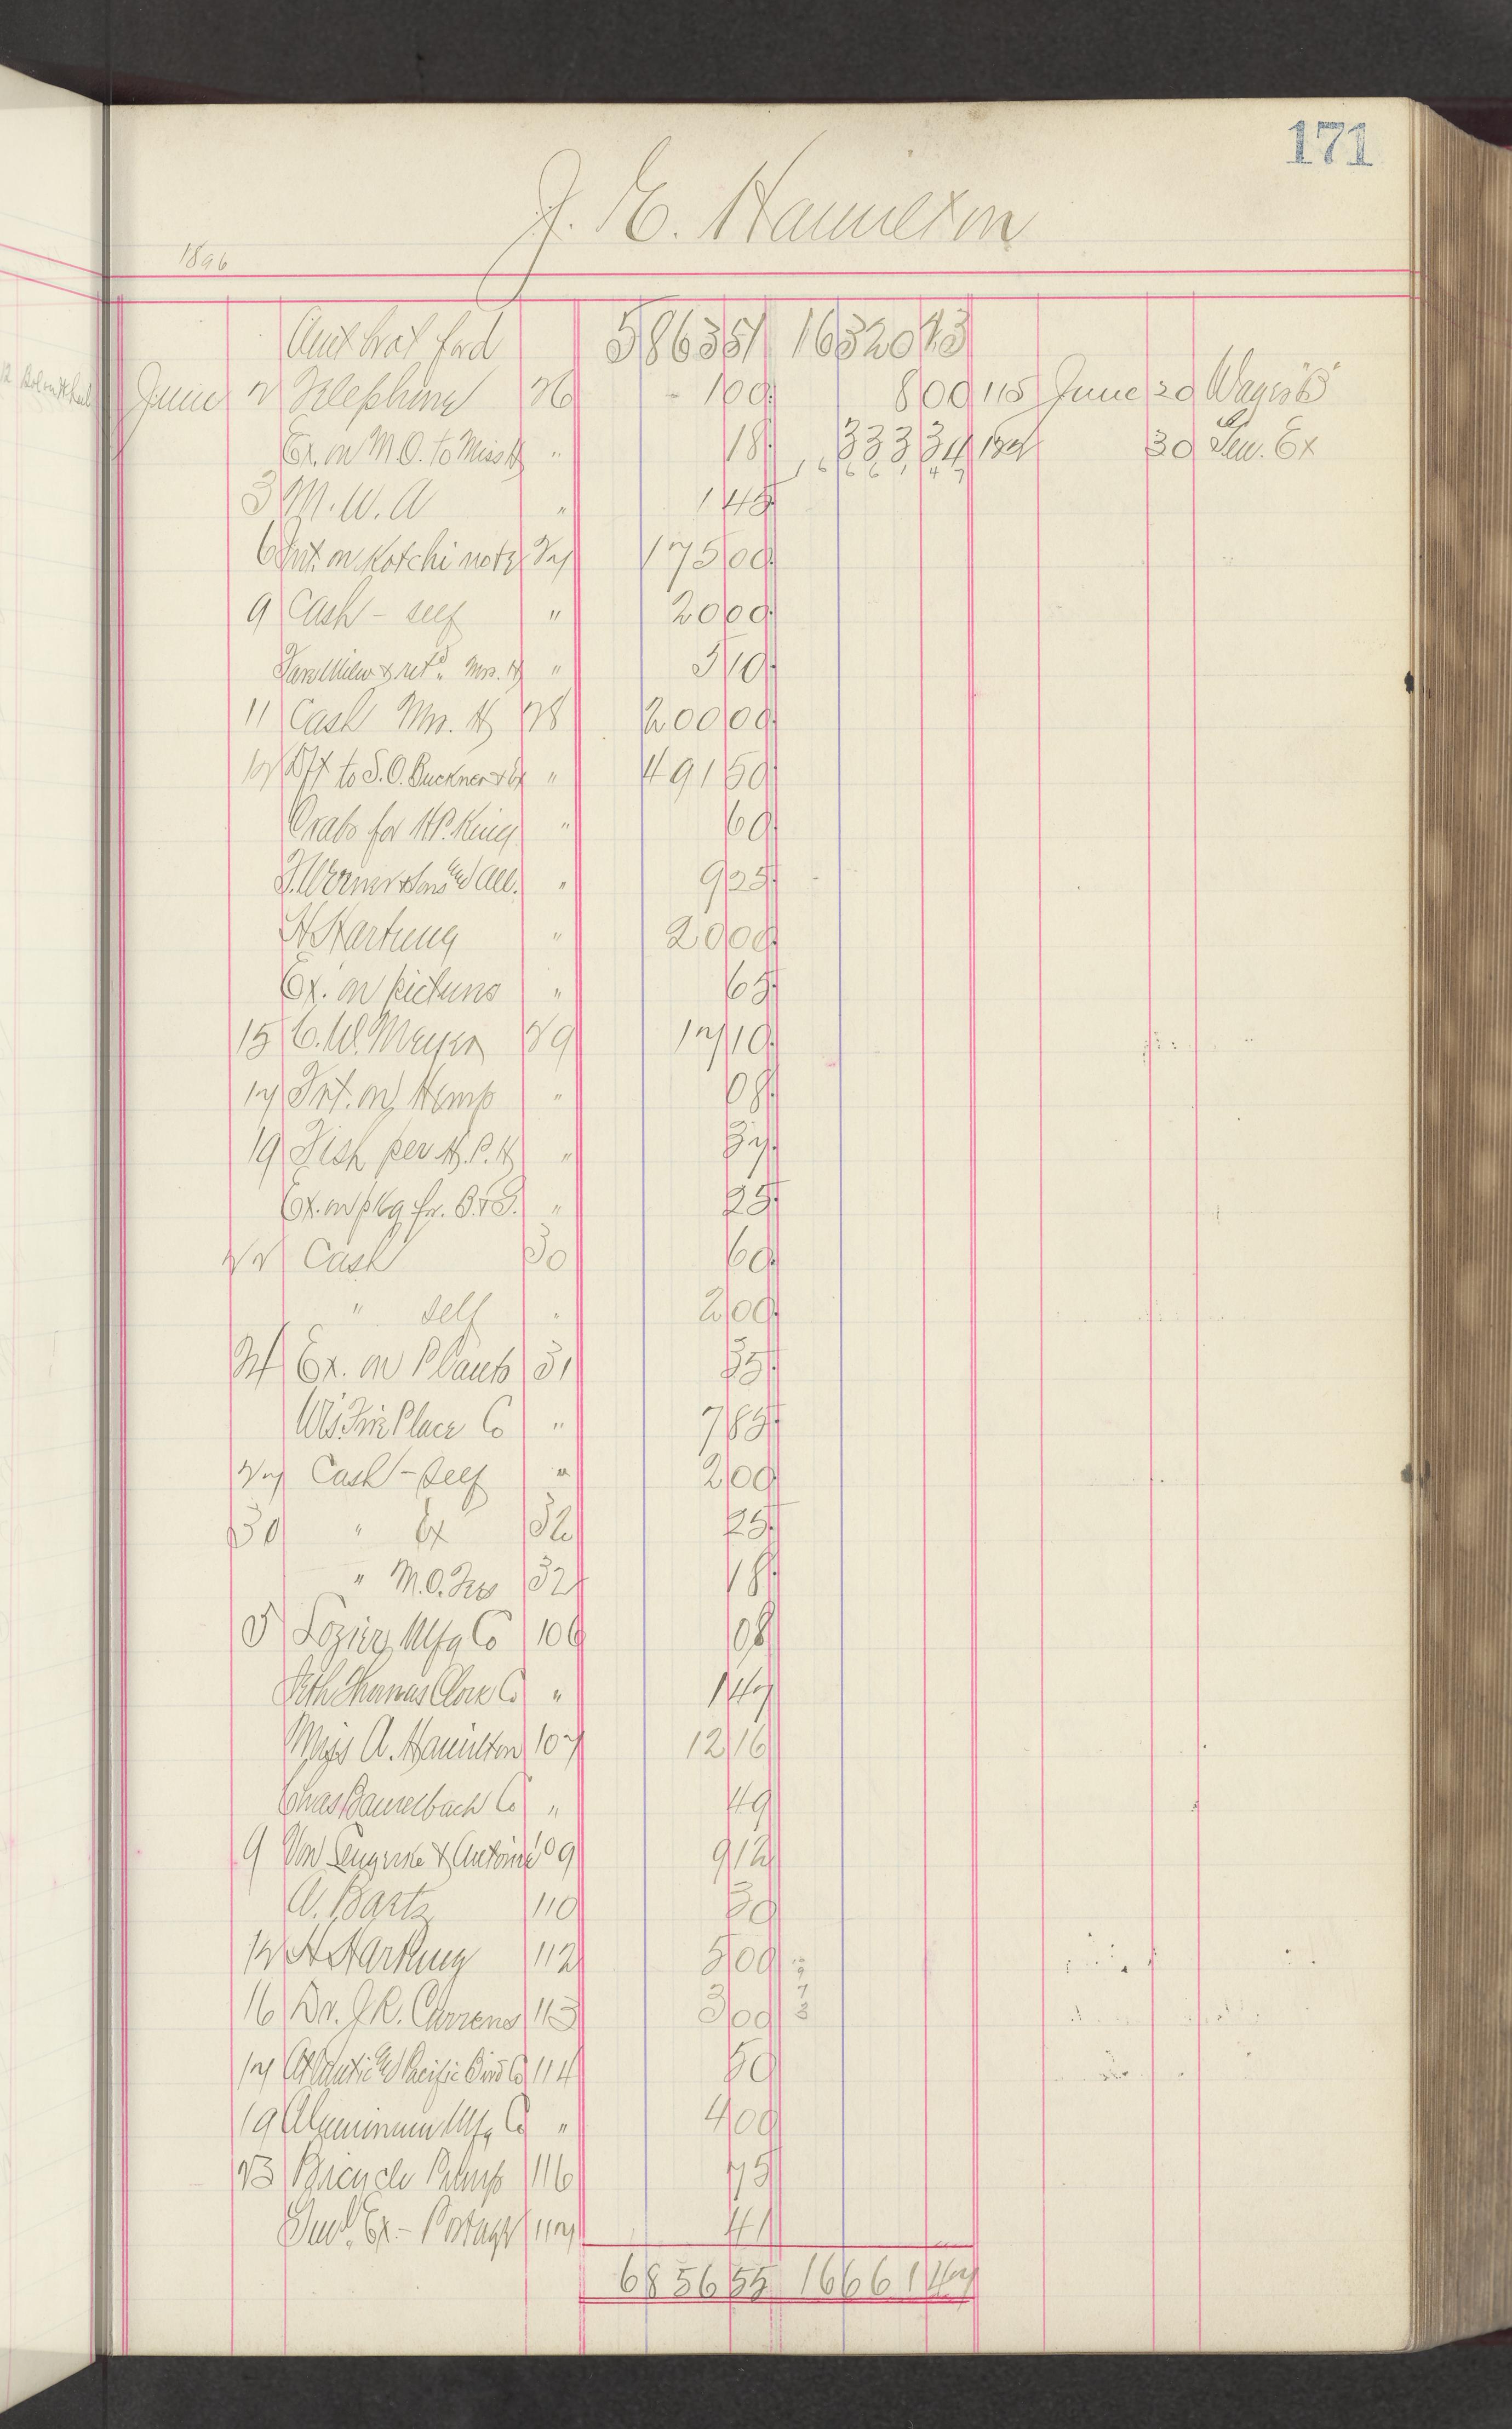 171
J. E. Hamilton
1896
Amt brot ford 5863 51 16320 13
June 2 Telephone 26 1 00 8 00 115 June 20 Wages "B"
Ex. on M.O. to Miss H " 18 333 34 30 Gen. Ex
16661 47
3 M. W. A " 1 45
6 Int. on Kotchi note 27 175 00
9 Cash - self " 20 00
Milw & ret. Mrs. H " 5 10
11 Cash Mrs. H 28 200 00
12 Dft to S.O. Buckner " 491 50
for H.P. King " 60
J. Werner & Sons All. " 9 25
H Hartung " 20 00
Ex. on pictures " 65
15 C. W. Meyer 29 17 10
17 Frt. on Hemp " 08
19 Fish per H. P. H " 37
Ex. on pkg fr. " 25
22 Cash 30 60
" self " 2 00
24 Ex. on Plants 31 35
Wis. Fire Place Co " 7 85
27 Cash - self " 2 00
30 " Ex 32 25
" M.O. 32 18
5 Lozier Mfg Co 106 08
Seth Thomas Clock Co " 1 47
Miss A. Hamilton 107 12 16
Chas Baumbach Co " 49
9 Von Lengerke & Antoine 109 9 12
A. Bartz 110 30
12 H Hartung 112 5 00
16 Dr. J. R. Currens 113 3 00
17 Atlantic & Pacific Co 114 50
19 Aluminum Mfg Co " 4 00
23 Bicycle Pump 116 75
Ex - Postage 117 41
6856 55 16661 47